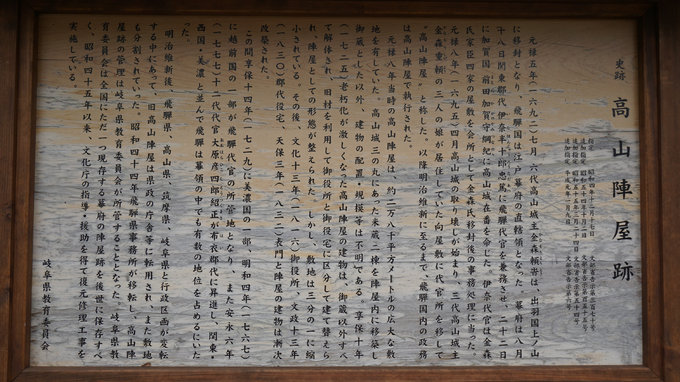 史跡 高山陣屋跡
指定 昭和四年十二月十七日 文部省告示第三百七十号
追加指定 昭和五十五年十二月二日
追加指定 平成元年一月九日
元禄五年(一六九二)七月、六代高山城主金森頼旹は、出羽国上ノ山
に移封となり、飛騨国は江戸幕府の直轄領となった。幕府は八月
十八日関東郡代伊奈半十郎忠篤に飛騨代官を兼務させ、二十二日
に加賀国前田加賀守綱紀に高山城在番を命じた。伊奈代官は金森
氏家臣四家の屋敷を会所として金森氏移封後の事務処理に当った。
元禄八年(一六九五)四月高山城の取り壊しが始まり、三代高山城主
金森重頼の三人の娘が居住していた向屋敷に代官所を移して
"高山陣屋"と称した。以降明治維新に至るまで、飛騨国内の政務
は高山陣屋で執行された。
元禄八年当時の高山陣屋は、約二万八千平方メートルの広大な敷
地を有していた。高山城三の丸にあった米蔵二棟を陣屋内に移築し
御蔵とした以外、建物の配置・規模等は不明である。享保十年
(一七二五)老朽化が激しくなった高山陣屋の建物は、御蔵以外すべ
て解体され、旧材を利用して御役所と御役宅に区分して建て替えら
れ、陣屋としての形態が整えられた。しかも、敷地は三分の一に縮
小されている。その後、文化十三年(一八一六)御役所、文政十三年
(一八三〇)郡代役宅、天保三年(一八三二)表門と陣屋の建物は漸次
改築された。
この間享保十四年(一七二九)に美濃国の一部、明和四年(一七六七)
に越前国の一部が飛騨代官の所管地となり、また安永六年
(一七七七)十二代代官大原彦四郎紹正が布衣郡代に昇進し、関東・
西国・美濃と並んで飛騨は幕領の中でも有数の地位を占めるにいた
った。
明治維新後、飛騨県、高山県、筑摩県、岐阜県と行政区画が変転
する中にあって、旧高山陣屋は県政の庁舎等に転用され、また敷地
も分割されていった。昭和四十四年飛騨県事務所が移転し、高山陣
屋跡の管理は岐阜県教育委員会が所管することとなった。岐阜県教
育委員会は全国にただ一つ現存する幕府の陣屋跡を後世に保存すべ
く、昭和四十五年以来、文化庁の指導・援助を得て復元修理工事を
実施している。
岐阜県教育委員会